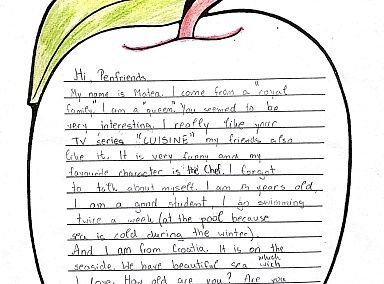 Hi, Penfriends
My name is Matea. I come from a "royal
family." I am a "queen." You seemed to be
very interesting. I really like your
TV series "CUISINE" my friends also
like it. It is very funny and my
favourite character is the Chef. I forgot
to talk about myself. I am 14 years old
I am a good student, I go swimming
twice a week (at the pool because
sea is cold during the winter).
And I am from Croatia. It is on the
seaside. We have beautiful sea which
I love. How old are you? Are you